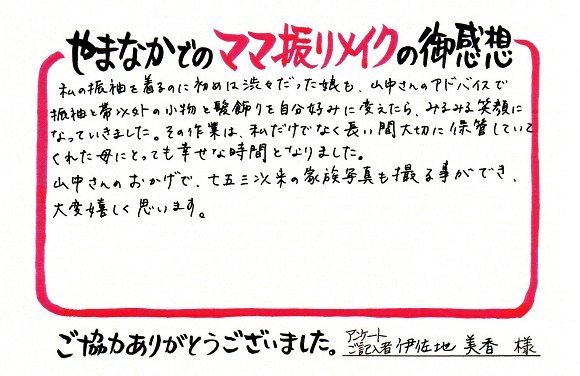 やまなかでのママ振りメイクの御感想
私の振袖を着るのに初めは渋々だった娘も、山中さんのアドバイスで
振袖と帯以外の小物と髪飾りを自分好みに変えたら、みるみる笑顔に
なっていきました。その作業は、私だけでなく長い間大切に保管していて
くれた母にとっても幸せな時間となりました。
山中さんのおかげで、七五三以来の家族写真も撮る事ができ、
大変嬉しく思います。
ご協力ありがとうございました。
アンケート
ご記入者 伊佐地 美香 様